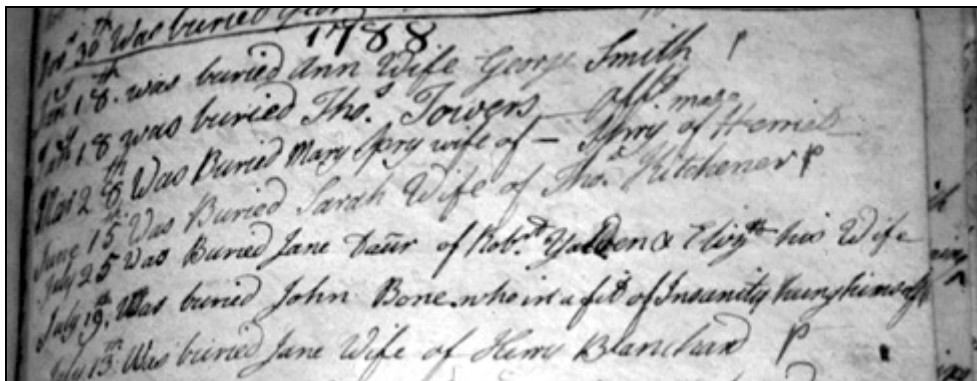 30th Was buried
1788
Jan 18th was buried Ann Wife George Smith P
18 was buried Thos. Towers
Mar 28th Was Buried Mary Spry wife of – Spry of Herriard
June 15th Was Buried Sarah Wife of Thos. Kitchener P
July 25 Was Buried Jane Daur of Robt. Yalden & Elizth his Wife
July 9th Was buried John Bone who in a fit of Insanity hung himself
July 13th Was buried Jane Wife of Henry Blanchard P